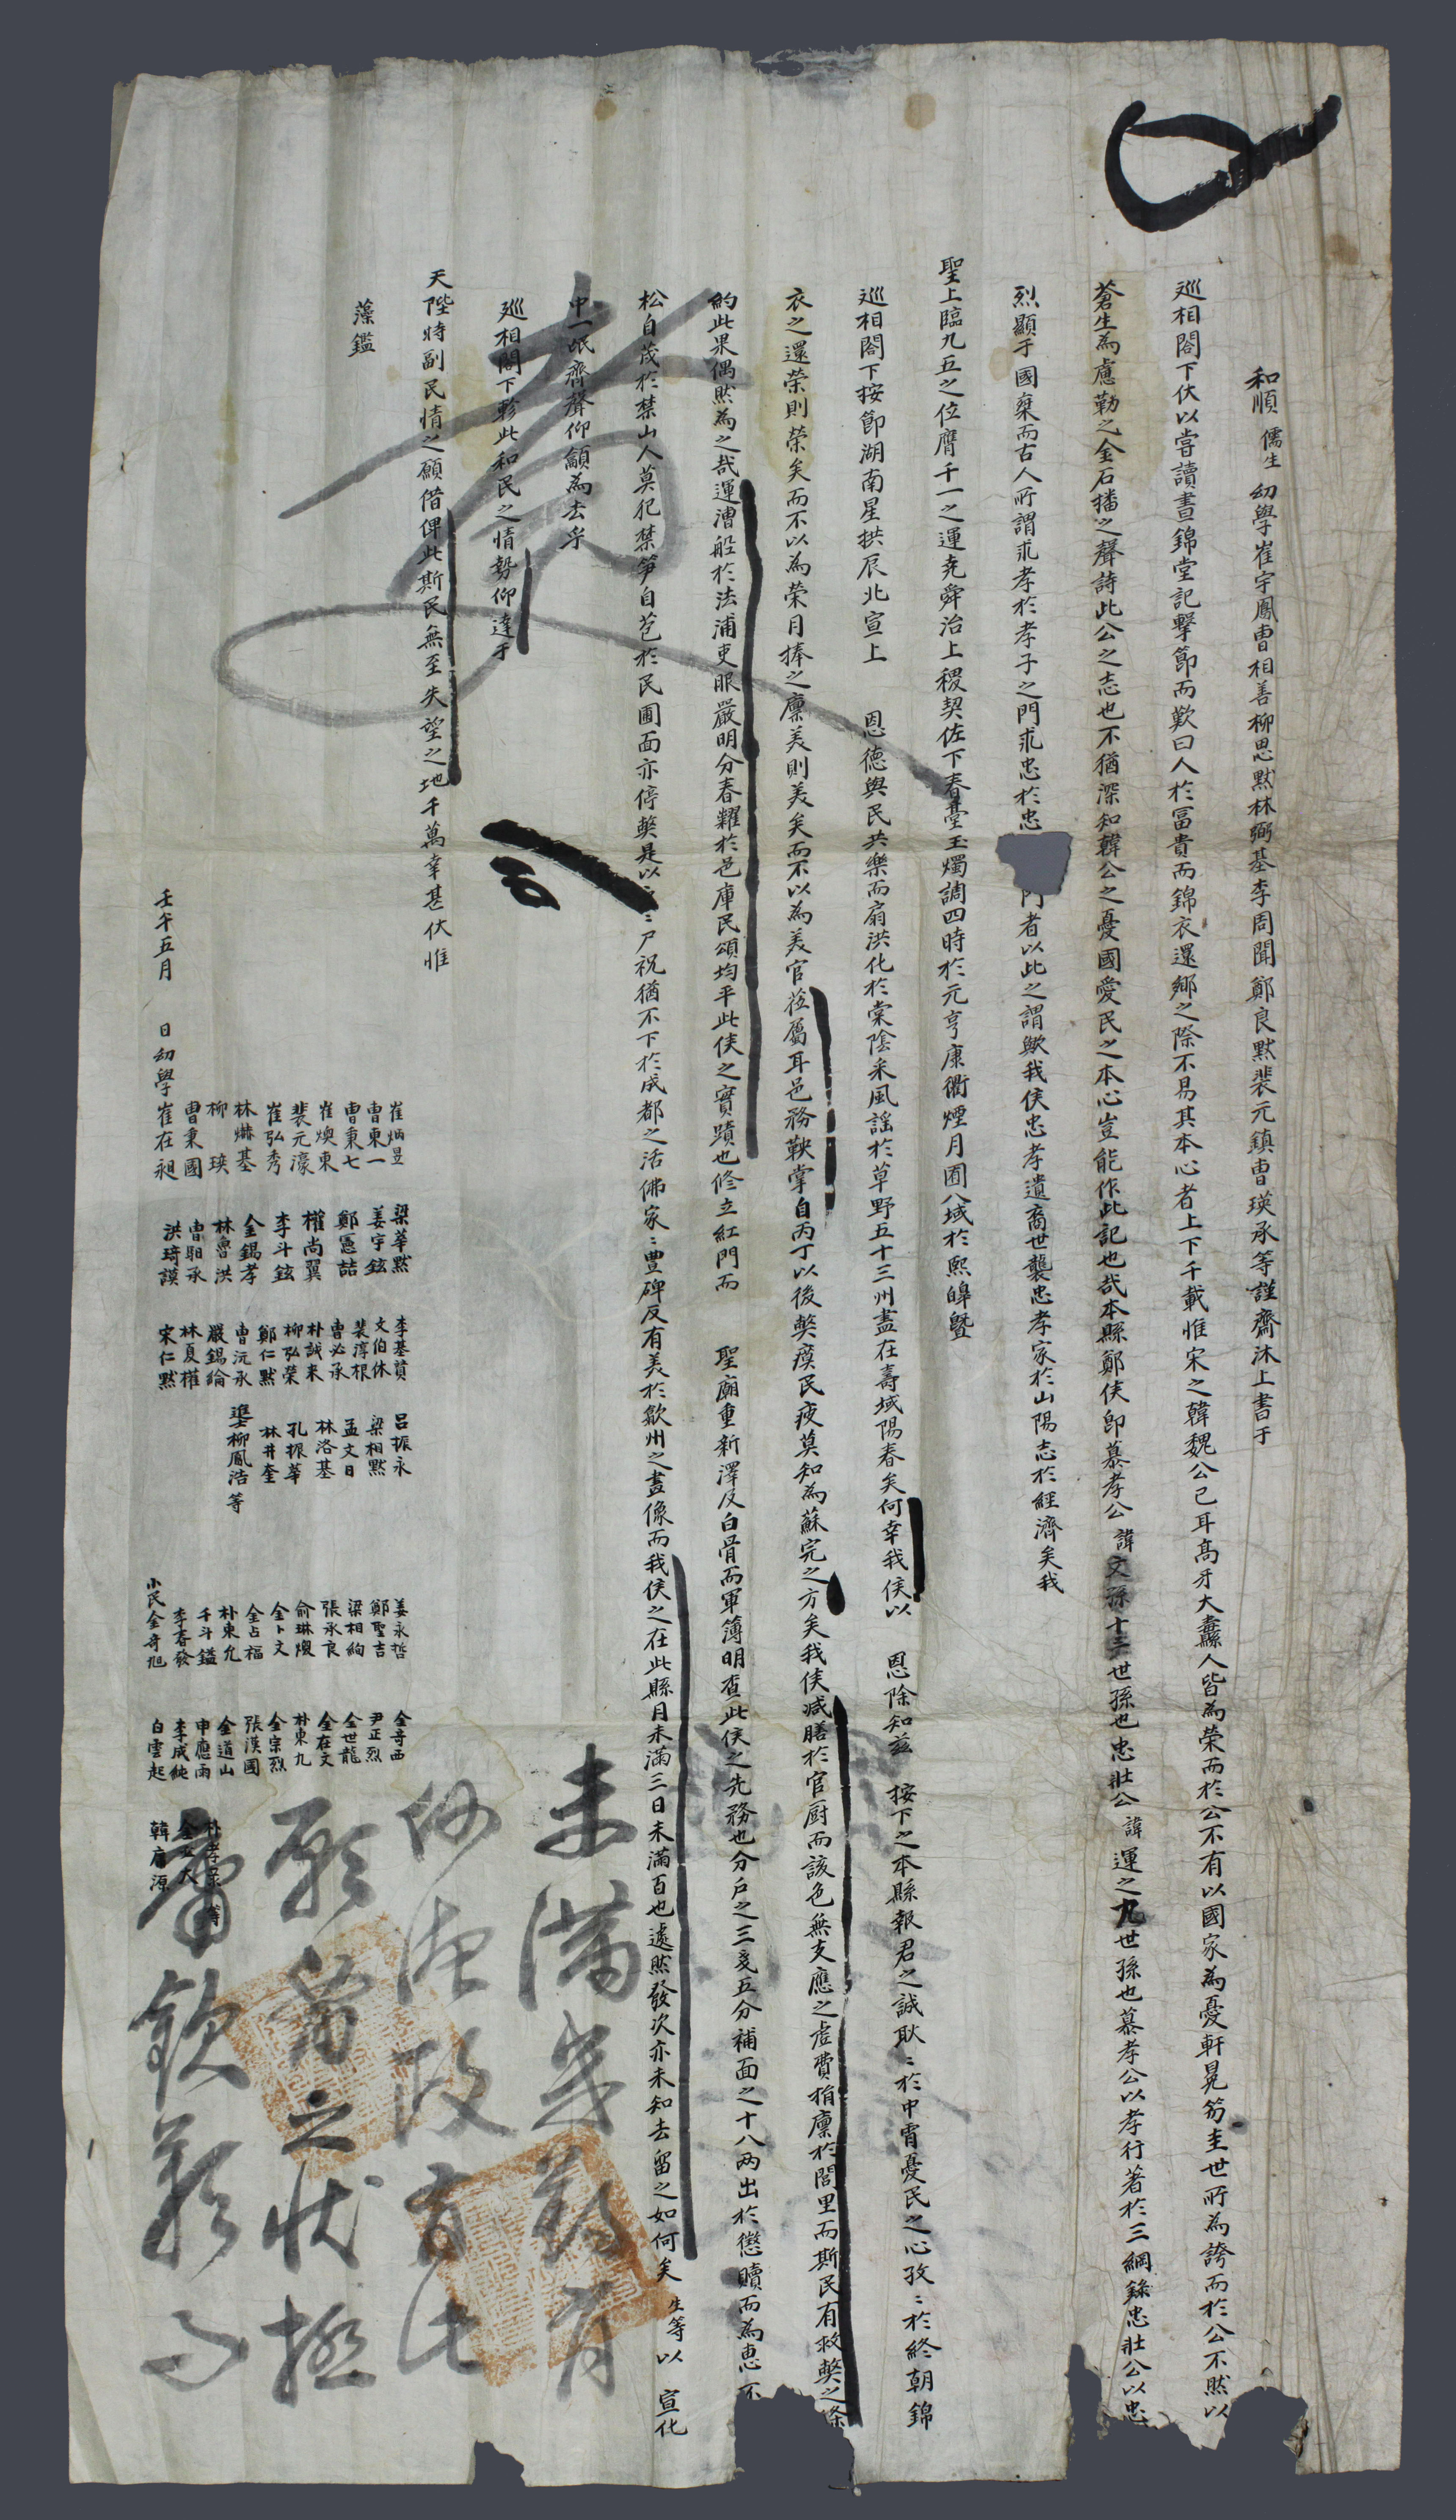 和順 儒生 幼學崔宇鳳曺相善柳思黙林弼基李周聞鄭良黙裴元鎮曺瑛承等謹齋沐上書于
巡相閤下伏以嘗讀晝錦堂記擊節而歎曰人於冨貴而錦衣還鄕之際不易其本心者上下千載惟宋之韓魏公已耳高牙大纛人皆為榮而於公不有以國家為憂軒冕笏圭世所為誇而於公不然以
蒼生為慮勒之金石播之聲詩此公之志也不猶深知韓公之憂國愛民之本心豈能作此記也哉本縣鄭侯卽慕孝公 諱 文孫十三世孫也忠壯公 諱 運之九世孫也慕孝公以孝行著於三綱錄忠壯公以忠
烈顯于國乘而古人所謂求孝於孝子之門求忠於忠 門者以此之謂歟我侯忠孝遺裔世襲忠孝家於山陽志於經濟矣我
聖上臨九五之位膺千一之運堯舜治上稷契佐下春臺玉燭調四時於元亨康衢煙月囿八域於熙皥曁
巡相閤下按節湖南星拱辰北宣上 恩德與民共樂而扇洪化於棠陰采風謠於草野五十三州盡在壽域陽春矣何幸我侯以 恩除知玆 按下之本縣報君之誠耿〻於中霄憂民之心孜〻於終朝錦
衣之還榮則榮矣而不以為榮月捧之廩美則美矣而不以為美官莅屬耳邑務鞅掌自丙丁以後獘瘼民疲莫知為蘇完之方矣我侯减膳於官厨而該色無支應之虗費捐廩於閭里而斯民有救獘之條
約此果偶然為之哉運漕船於法浦吏眼嚴明分春糶於邑庫民頌均平此侯之實蹟也修立紅門而 聖廟重新澤及白骨而軍簿明査此侯之先務也分戶之三戔五分補面之十八两出於懲贖而為惠不
松自茂於禁山人莫犯禁笋自苞於民圃面亦停獘是以 〻尸祝猶不下於成都之活佛家〻豊碑反有美於歙州之畫像而我侯之在此縣月未滿三日未滿百也遽然發次亦未知去留之如何矣 生等以 宣化
中一氓齊聲仰籲為去乎
巡相閤下軫此和民之情勢仰達于
天陛特副民情之願借俾此斯民無至失望之地千萬幸甚伏惟
藻鑑
壬午五月 日幼學崔在昶
曺秉國
柳 瑛
林爀基
崔弘秀
裴元濠
崔煥東
曺秉七
曺東一
崔炳昱
梁華黙
姜宇鉉
鄭憲喆
權尚翼
李斗鉉
金錫孝
林魯洪
曺駉承
洪琦謨
李基賁
文伯休
裴淳根
曺必承
朴誠末
柳弘榮
鄭仁黙
曺沅承
嚴錫綸
林夏權
宋仁黙
呂振永
梁相黙
孟文日
林洛基
孔振華
林井奎
進士柳鳳浩 等
姜永哲
鄭聖吉
梁相絢
張承良
俞琳煥
金卜文
金占福
朴東允
千斗鎰
李春發
小民金奇旭
金奇西
尹正烈
金世龍
金在文
朴東九
金宗烈
張漢國
金道山
申應雨
李成純
白雲起
韓用源
未滿 有
政
願 之狀極